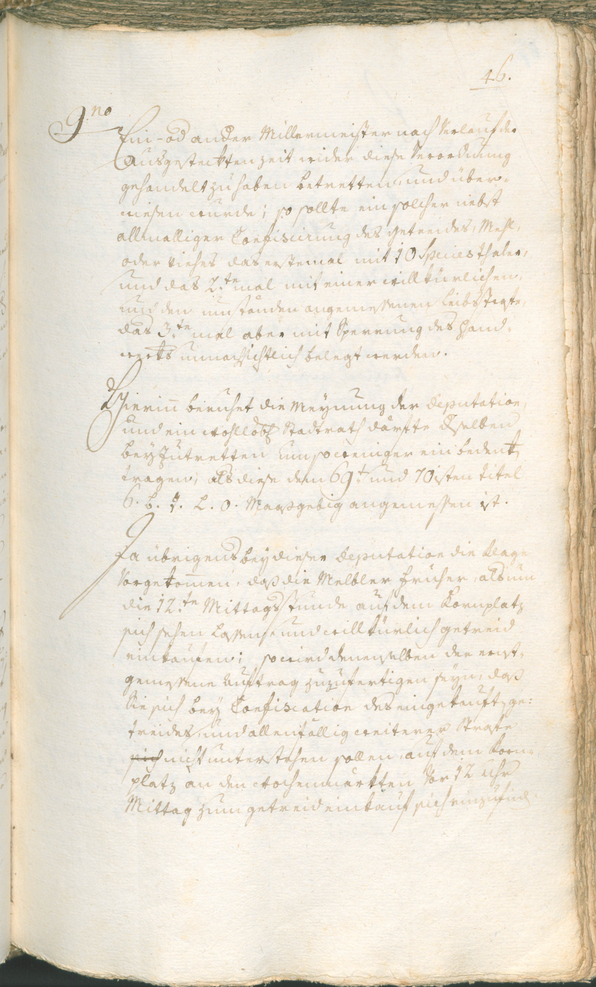 46.
9no
Ein- od ander Müllermeister nach Verlauf der
Ausgesteckten zeit wider diese Verordnung
gehandelt zu haben betretten, und über-
wiesen wurde; so sollte ein solcher nebst
allmalliger Confiscirung des getreides, Mehl,
oder Viehes das erstemal mit 10 Speciesthaler,
und das 2.te mal mit einer willkürlichen,
und den umständen angemessenen leibsstrafe
das 3te mal aber mit Sperrung des Hand-
werks unnachsichtlich belegt werden.
Hierinn beruhet die Meynung der Deputation,
und ein wohllöb: Stadtrath dörfte dselben
beyzutretten um so weniger ein bedenk
tragen, als diese dem 69t und 70isten titel
6. b. d. L. O. Massgebig angemessen ist.
Da übrigens bey dieser Deputation die klage
Vorgekommen, daß die Melbler früher, als um
die 12.te Mittagsstunde auf dem Kornplatz
sich sehen lassen und willkürlich getreid
einkaufen; so wird denenselben der erst-
gemessene Auftrag zuzufertigen seyn, daß
sie sich bey Confiscation des eingekauft, ge-
treides, und allenfällig weiterer Strafe
nicht unterstehen sollen, auf dem Korn-
platz an den Wochenmärkten Vor 12 Uhr
Mittag zum getreideinkauf sich einzufind